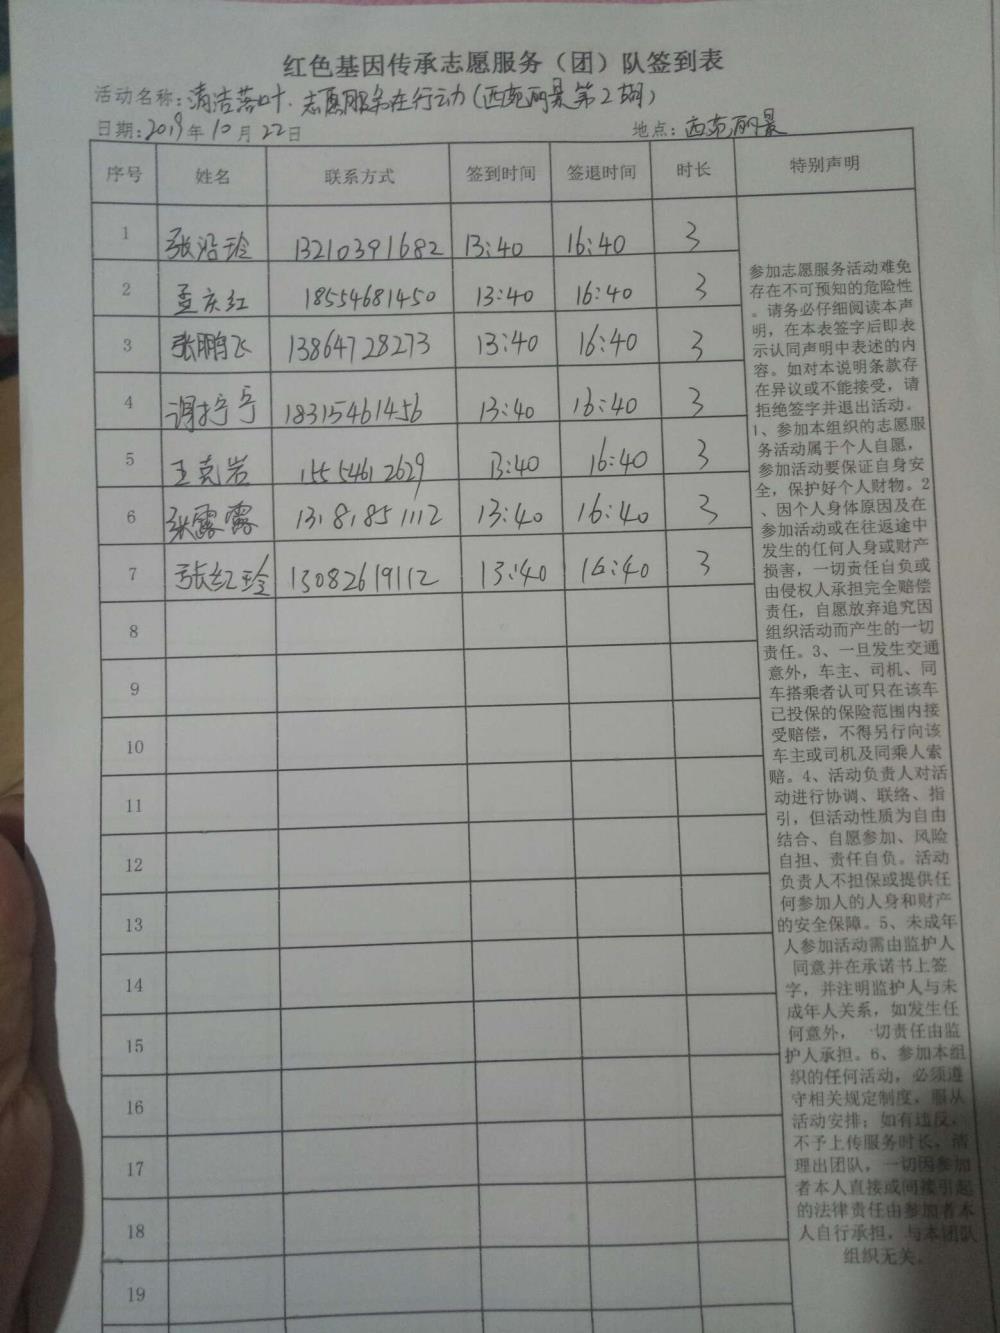 红色基因传承志愿服务（团）队签到表
活动名称：清洁落叶.志愿服务在行动（西苑丽景第2期）
日期：2019年10月22日 地点：西苑丽景
序号 姓名 联系方式 签到时间 签退时间 时长 特别声明
1 张沿玲 13210391682 13:40 16:40 3
2 孟庆红 18554681450 13:40 16:40 3
3 张鹏飞 13864728273 13:40 16:40 3
4 谢宁宁 18315461456 13:40 16:40 3
5 王克岩 15554612629 13:40 16:40 3
6 张露露 13181851112 13:40 16:40 3
7 张红玲 13082619112 13:40 16:40 3
8
9
10
11
12
13
14
15
16
17
18
19
参加志愿服务活动难免
存在不可预知的危险性
。请务必仔细阅读本声
明，在本表签字后即表
示认同声明中表述的内
容。如对本说明条款存
在异议或不能接受，请
拒绝签字并退出活动。
1、参加本组织的志愿服
务活动属于个人自愿，
参加活动要保证自身安
全，保护好个人财物。2
、因个人身体原因及在
参加活动或在往返途中
发生的任何人身或财产
损害，一切责任自负或
由侵权人承担完全赔偿
责任，自愿放弃追究因
组织活动而产生的一切
责任。3、一旦发生交通
意外，车主、司机、同
车搭乘者认可只在该车
已投保的保险范围内接
受赔偿，不得另行向该
车主或司机及同乘人索
赔。4、活动负责人对活
动进行协调、联络、指
引，但活动性质为自由
结合、自愿参加、风险
自担、责任自负。活动
负责人不担保或提供任
何参加人的人身和财产
的安全保障。5、未成年
人参加活动需由监护人
同意并在承诺书上签
字，并注明监护人与未
成年人关系，如发生任
何意外，一切责任由监
护人承担。6、参加本组
织的任何活动，必须遵
守相关规定制度，服从
活动安排；如有违反，
不予上传服务时长，清
理出团队，一切因参加
者本人直接或间接引起
的法律责任由参加者本
人自行承担，与本团队
组织无关。